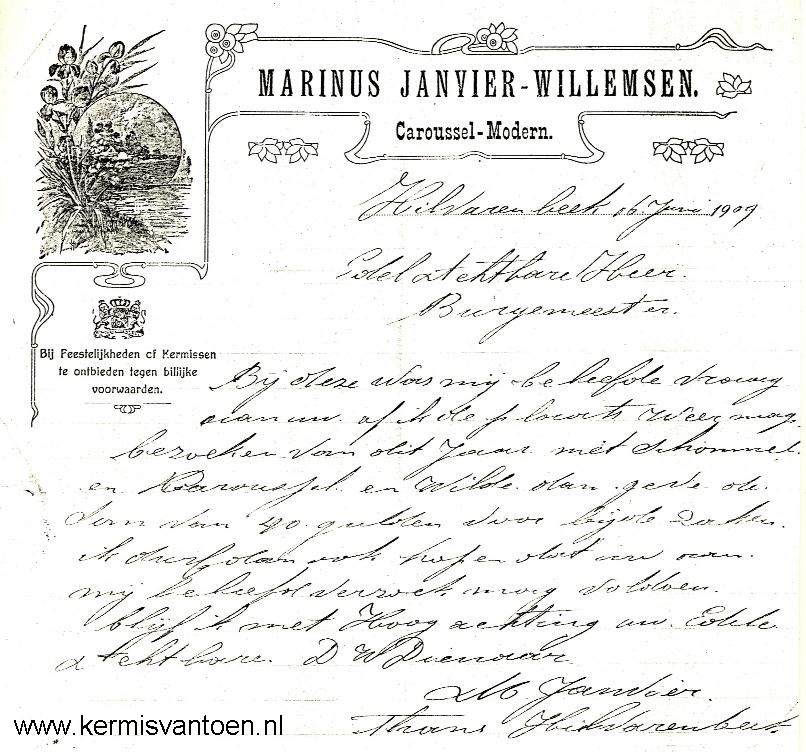 MARINUS JANVIER-WILLEMSEN.
Caroussel-Modern.
Hilvarenbeek 16 Juni 1909
Edel Achtbare Heer
Burgemeester.
Bij Feestelijkheden of Kermissen
te ontbieden tegen billijke
voorwaarden.
Bij deze was mij beleefde vraag
aan uw of ik de plaats weer mag
bezoeken van dit Jaar met Schommel
en Caroussel en wilde dan geve de
som van 40 gulden voor bijde zaken
ik durf dan ook hopen dat uw aan
mij beleefd verzoek mag voldoen.
blijf ik met Hoogachting uw Edele
Achtbare. D W Dienaar
M Janvier.
Thans Hilvarenbeek
www.kermisvantoen.nl